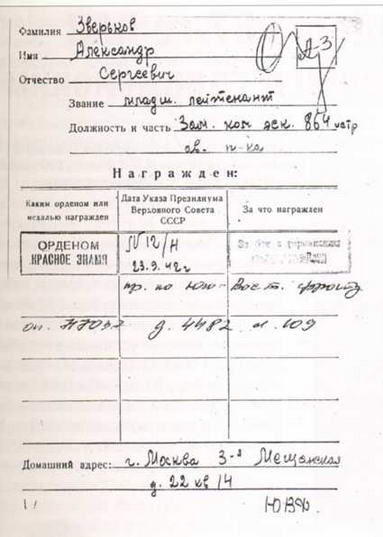 Фамилия Зверьков
Имя Александр
Отчество Сергеевич
А-3
Звание младш. лейтенант
Должность и часть Зам. ком эск. 864 истр
ав. п-ка
Награжден:
Каким орденом или медалью награжден
Дата Указа Президиума Верховного Совета СССР
За что награжден
ОРДЕНОМ КРАСНОЕ ЗНАМЯ
№ 12/н
23.9.42 г
За бои с германским
пр. по Юго-Вост. фронту
оп. д. 4482 л. 109
Домашний адрес: г. Москва 3-я Мещанская
д. 22 кв 14